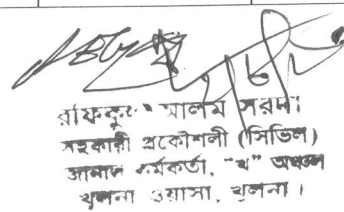 রফিকুল আলম সরদার
সহকারী প্রকৌশলী (সিভিল)
কর্মকর্তা, "খ" অঞ্চল
খুলনা ওয়াসা, খুলনা।